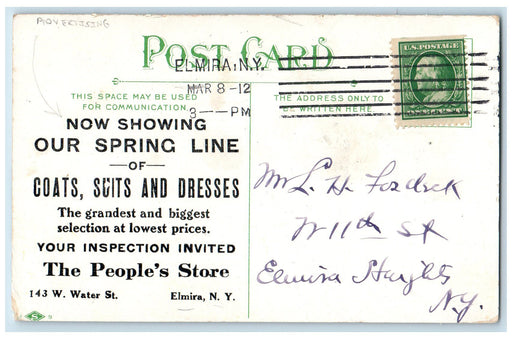 ADVERTISING
POST CARD
ELMIRA, N.Y.
MAR 8-12
3 — PM
U.S. POSTAGE
THIS SPACE MAY BE USED
FOR COMMUNICATION
THE ADDRESS ONLY TO
BE WRITTEN HERE
NOW SHOWING
OUR SPRING LINE
—OF—
COATS, SUITS AND DRESSES
The grandest and biggest
selection at lowest prices.
YOUR INSPECTION INVITED
The People's Store
143 W. Water St. Elmira, N. Y.
Mr L. H. Fosdick
W 11th St
Elmira Heights
N.Y.